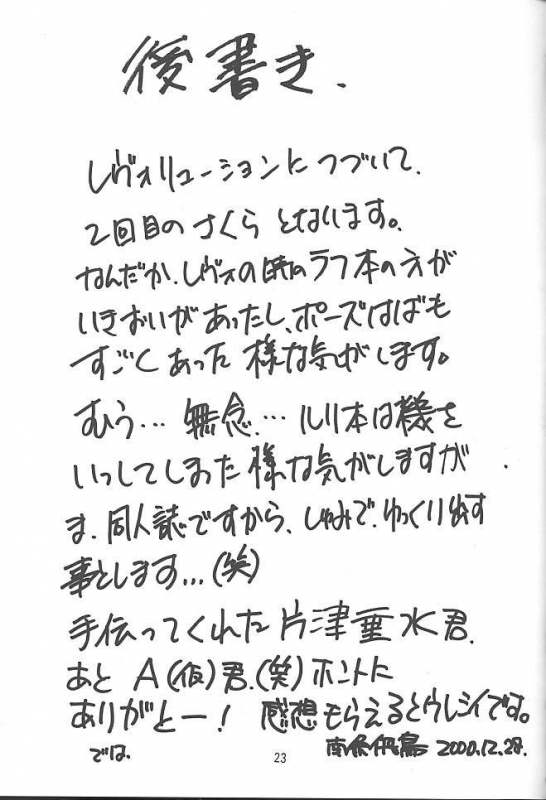 後書き.
レヴォリューションにつづいて.
2回目のさくらとなります。
なんだか、レヴォの時のラフ本の方が
いきおいがあったし、ポーズはばも
すごくあった様な気がします。
むう…無念.…ルリ本は機を
いっしてしまった様な気がしますが.
ま、同人誌ですから、しゅみで、ゆっくり出す
事とします…(笑)
手伝ってくれた片津垂水君.
あとA(仮)君.(笑)ホントに
ありがとー!感想もらえるとウレシイです。
では.
2000.12.28.
23